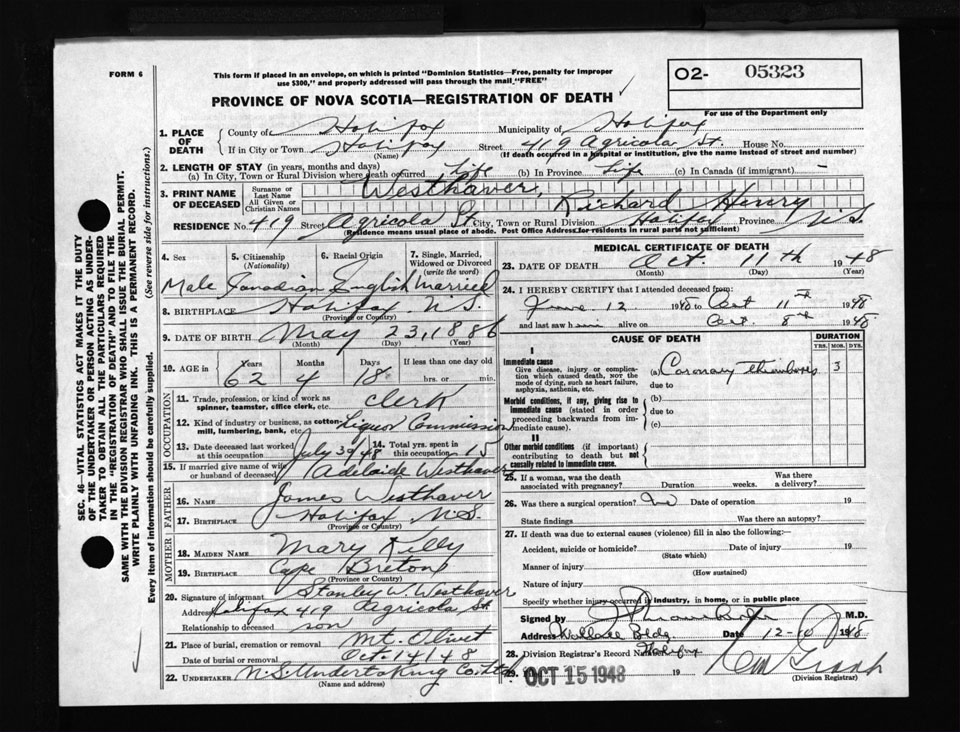 FORM 6
This form if placed in an envelope, on which is printed "Dominion Statistics—Free, penalty for improper
use $300," and properly addressed will pass through the mail "FREE"
O2- 05323
For use of the Department only
PROVINCE OF NOVA SCOTIA—REGISTRATION OF DEATH
1. PLACE OF DEATH
County of Halifax Municipality of Halifax
If in City or Town Halifax Street 419 Agricola St. House No.
(Name) (If death occurred in a hospital or institution, give the name instead of street and number)
2. LENGTH OF STAY (in years, months and days)
(a) In City, Town or Rural Division where death occurred Life (b) In Province Life (c) In Canada (if immigrant) —
3. PRINT NAME OF DECEASED
Surname or Last Name Westhaver,
All Given or Christian Names Richard Henry
RESIDENCE No. 419 Street Agricola St. City, Town or Rural Division Halifax Province N.S.
(Residence means usual place of abode. Post Office Address for residents in rural parts not sufficient)
4. Sex
5. Citizenship (Nationality)
6. Racial Origin
7. Single, Married, Widowed or Divorced (write the word)
Male Canadian English Married
8. BIRTHPLACE Halifax N.S.
(Province or Country)
9. DATE OF BIRTH May 23, 1886
(Month) (Day) (Year)
10. AGE in
Years Months Days If less than one day old
62 4 18 hrs. or min.
OCCUPATION
11. Trade, profession, or kind of work as
spinner, teamster, office clerk, etc. Clerk
12. Kind of industry or business, as cotton
mill, lumbering, bank, etc. Liquor Commission
13. Date deceased last worked
at this occupation July 3 1948
14. Total yrs. spent in
this occupation 15
15. If married give name of wife
or husband of deceased Adelaide Westhaver
FATHER
16. NAME James Westhaver
17. BIRTHPLACE Halifax N.S.
(Province or Country)
MOTHER
18. MAIDEN NAME Mary Killy
19. BIRTHPLACE Cape Breton
(Province or Country)
20. Signature of informant Stanley W. Westhaver
Address Halifax 419 Agricola St
Relationship to deceased son
21. Place of burial, cremation or removal Mt. Olivet
Date of burial or removal Oct. 14 48
22. UNDERTAKER N.S. Undertaking Co. Ltd.
(Name and address)
MEDICAL CERTIFICATE OF DEATH
23. DATE OF DEATH Oct. 11th 1948
(Month) (Day) (Year)
24. I HEREBY CERTIFY that I attended deceased from:
June 12 1948 to Oct 11th 1948
and last saw him alive on Oct. 8th 1948
CAUSE OF DEATH
DURATION
YRS. MOS. DYS.
I
Immediate cause
Give disease, injury or complication which caused death, NOT the mode of dying, such as heart failure, asphyxia, asthenia, etc.
(a) Coronary thrombosis 3
due to
Morbid conditions, if any, giving rise to immediate cause (stated in order proceeding backwards from immediate cause).
(b)
due to
(c)
II
Other morbid conditions (if important) contributing to death but not causally related to immediate cause.
25. If a woman, was the death
associated with pregnancy? Duration weeks. Was there a delivery?
26. Was there a surgical operation? No Date of operation 19
State findings Was there an autopsy?
27. If death was due to external causes (violence) fill in also the following:—
Accident, suicide or homicide? Date of injury 19
(State which)
Manner of injury
(How sustained)
Nature of injury
Specify whether injury occurred in industry, in home, or in public place
Signed by M.D.
Address Wallace Bldg. Date 12-10 1948
28. Division Registrar's Record Number Halifax
29. OCT 15 1948 19
(Division Registrar)
SEC. 46—VITAL STATISTICS ACT MAKES IT THE DUTY
OF THE UNDERTAKER OR PERSON ACTING AS UNDERTAKER
TO OBTAIN ALL THE PARTICULARS REQUIRED
IN THE "REGISTRATION OF DEATH" AND TO FILE THE
SAME WITH THE DIVISION REGISTRAR WHO SHALL ISSUE THE BURIAL PERMIT.
WRITE PLAINLY WITH UNFADING INK. THIS IS A PERMANENT RECORD.
Every item of information should be carefully supplied. (See reverse side for instructions.)